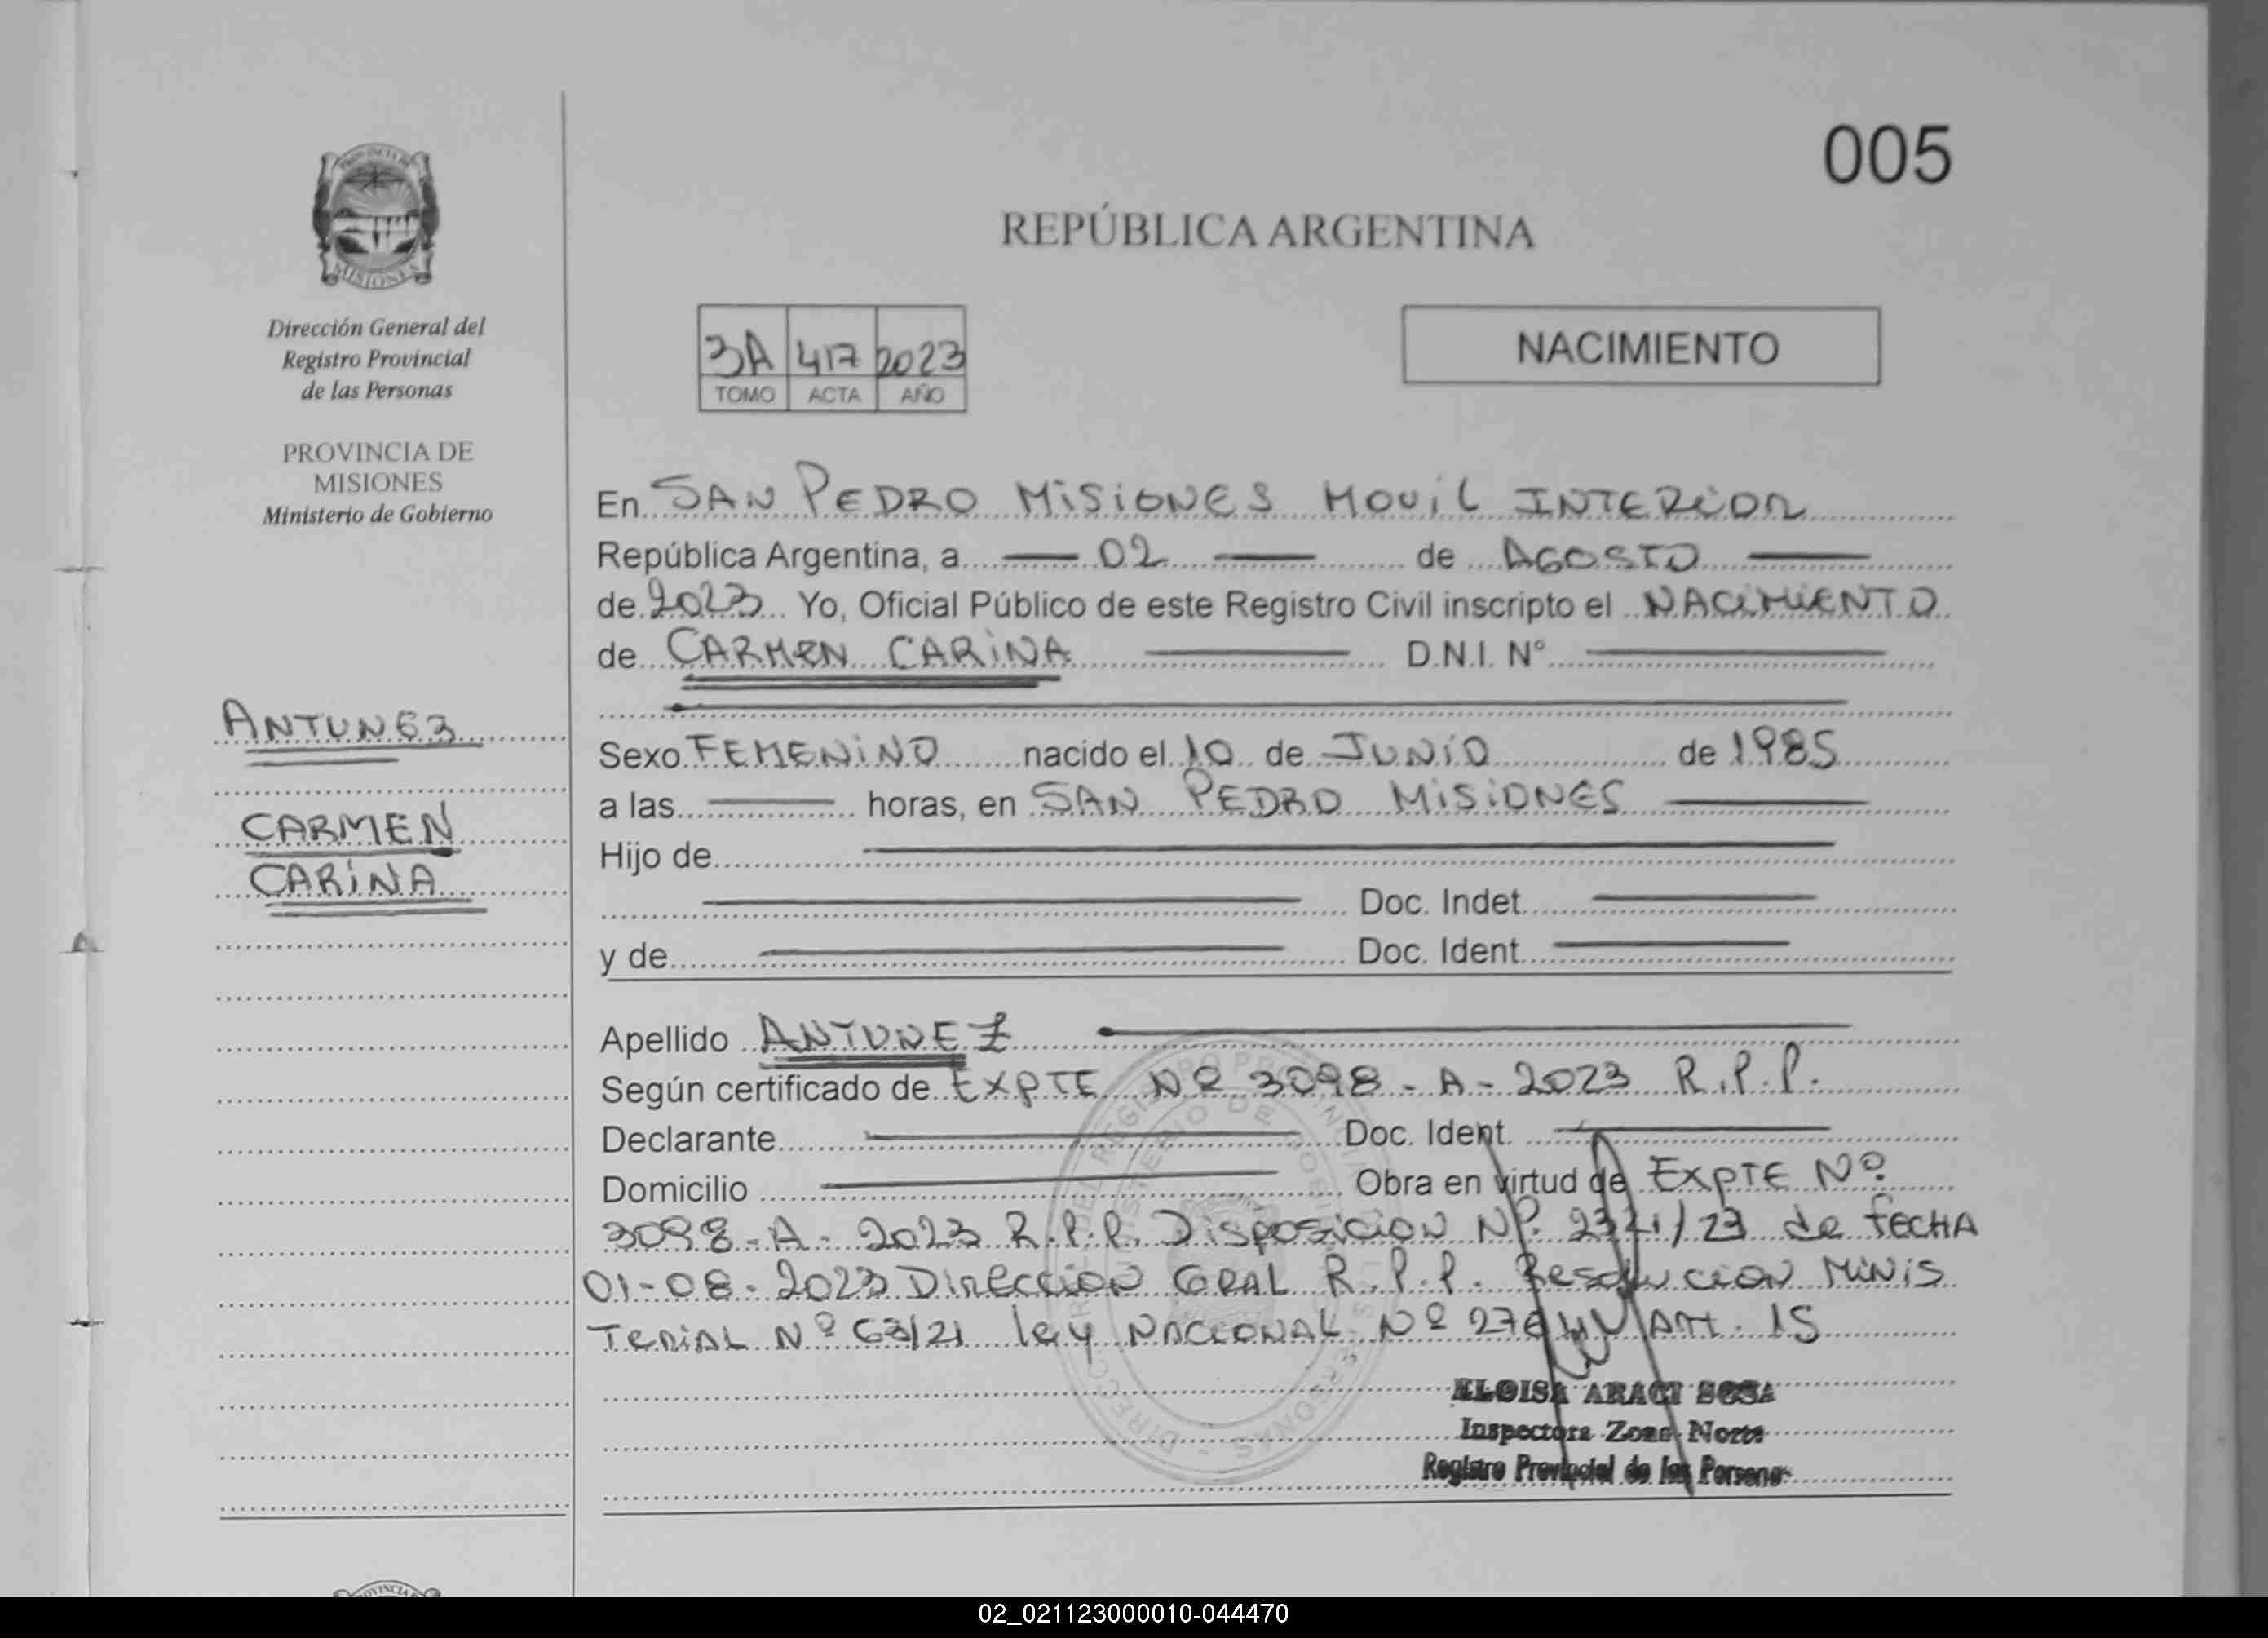 005
PROVINCIA DE
MISIONES
REPÚBLICA ARGENTINA
Dirección General del
Registro Provincial
de las Personas
PROVINCIA DE
MISIONES
Ministerio de Gobierno
3A 417 2023
TOMO ACTA AÑO
NACIMIENTO
En SAN PEDRO MISIONES MOVIL INTERIOR
República Argentina, a 02 de AGOSTO
de 2023 Yo, Oficial Público de este Registro Civil inscripto el NACIMIENTO
de CARMEN CARINA D.N.I. N°
ANTUNEZ
CARMEN
CARINA
Sexo FEMENINO nacido el 10 de JUNIO de 1985
a las horas, en SAN PEDRO MISIONES
Hijo de
Doc. Indet.
y de Doc. Ident.
Apellido ANTUNEZ
Según certificado de EXPTE Nº 3098-A-2023 R.P.P.
Declarante Doc. Ident.
Domicilio Obra en virtud de EXPTE Nº
3098-A-2023 R.P.P. Disposicion Nº /23 de FECHA
01-08-2023 Direccion GRAL R.P.P. Resolucion MINIS
TERIAL Nº 63/21 ley NACIONAL Nº ART. 15
ELOISA ARACI SOSA
Inspectora Zona Norte
Registro Provincial de las Personas
PROVINCIA
02_021123000010-044470